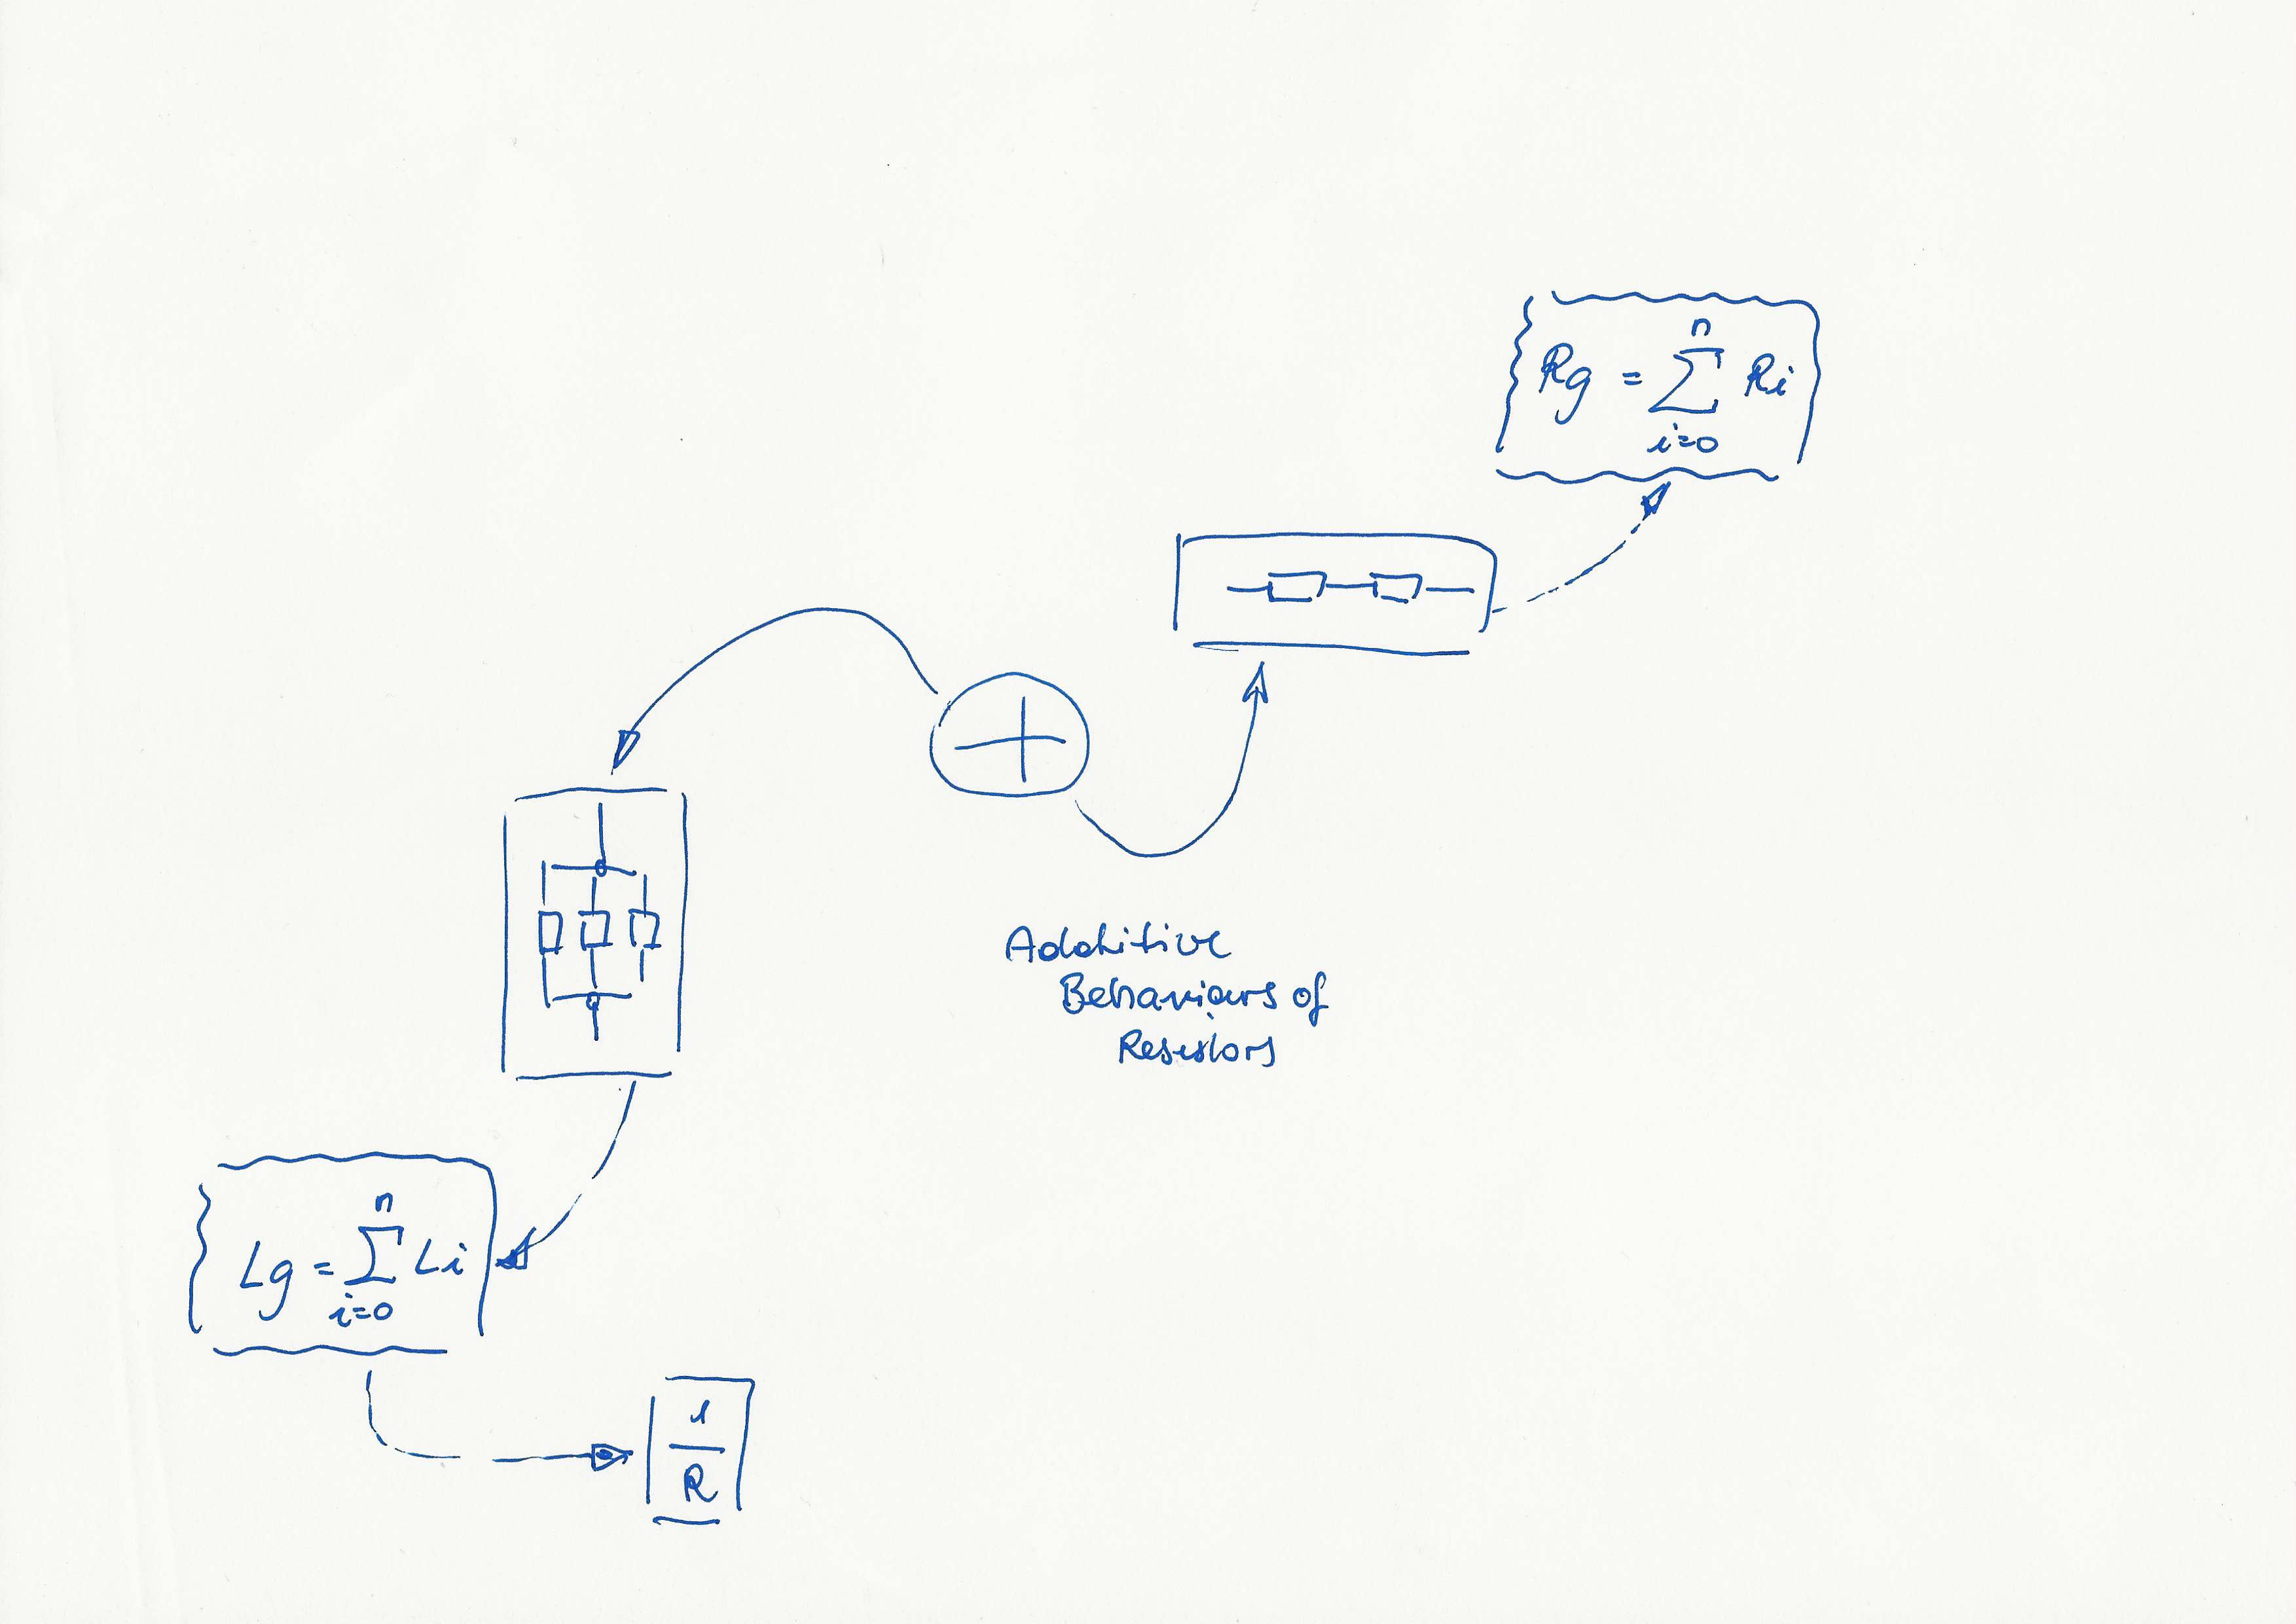 Rg = n∑i=0 Ri
Additive
Behaviours of
Resistors
Lg = n∑i=0 Li
1/R